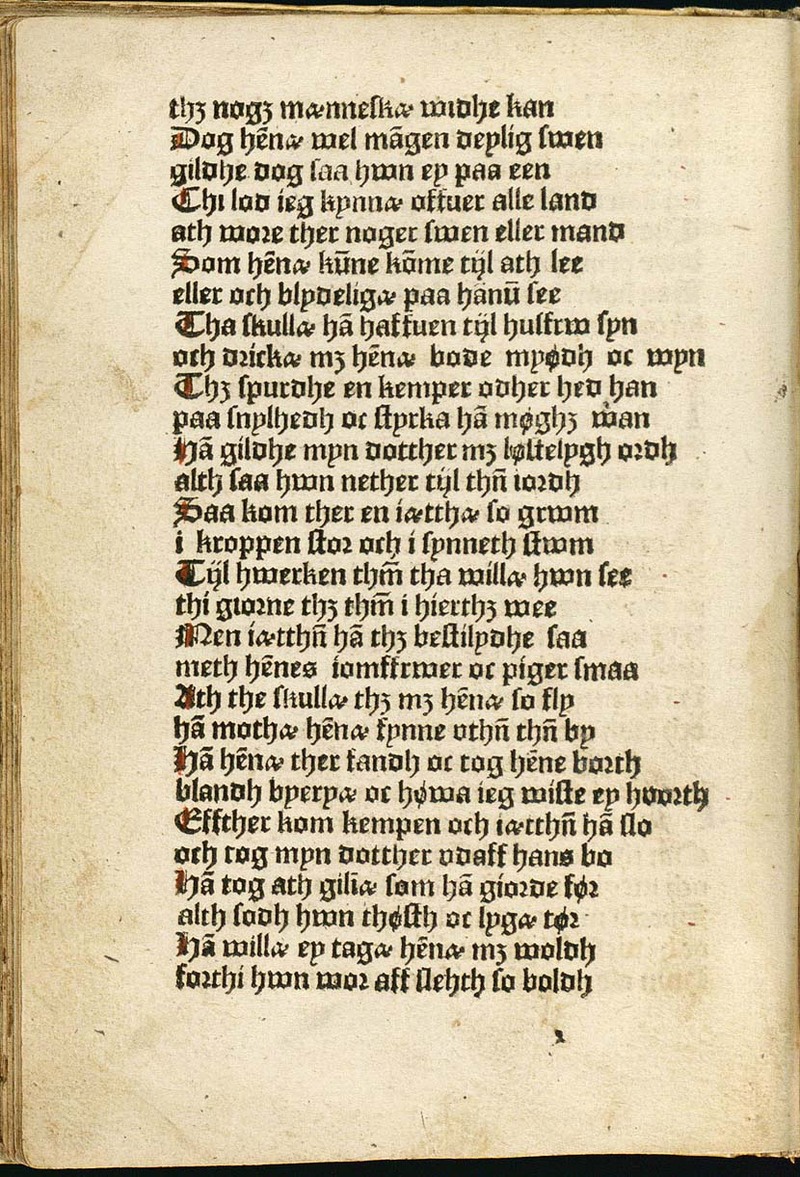 thꝫ nogꝫ mænneskæ widhe kan
Dog hēnæ wel māgen deylig swen
gildhe dog saa hwn ey paa een
Thi lod ieg kynnæ offuer alle land
ath wore ther noger swen eller mand
Som hēnæ kūne kōme tijl ath lee
eller och blydeligæ paa hanū see
Tha skullæ hā haffuen tijl husfrw syn
och drickæ mꝫ hēnæ bode myødh oc wyn
Thꝫ spurdhe en kemper odher hed han
paa snylhedh oc styrka hā møghꝫ wan
Hā gildhe myn dotther mꝫ løstelygh ordh
alth saa hwn nether tijl thn̄ iordh
Saa kom ther en iætthæ so grwm
i kroppen stor och i synneth stwm
Tijl hwerken thm̄ tha willæ hwn see
thi giorne thꝫ thm̄ i hierthꝫ wee
Men iætthn̄ hā thꝫ bestilydhe saa
meth hēnes iomffrwer oc piger smaa
Ath the skullæ thꝫ mꝫ hēnæ so fly
hā mothæ hēnæ fynne vthn̄ thn̄ by
Hā hēnæ ther fandh oc tog hēne borth
blandh byeryæ oc høwa ieg wiste ey hvorth
Effther kom kempen och iætthn̄ hā slo
och tog myn dotther vdaff hans bo
Hā tog ath giliæ som hā giorde før
alth sodh hwn thøsth oc lygæ tør
Hā willæ ey tagæ hēnæ mꝫ woldh
forthi hwn wor aff slehth so boldh